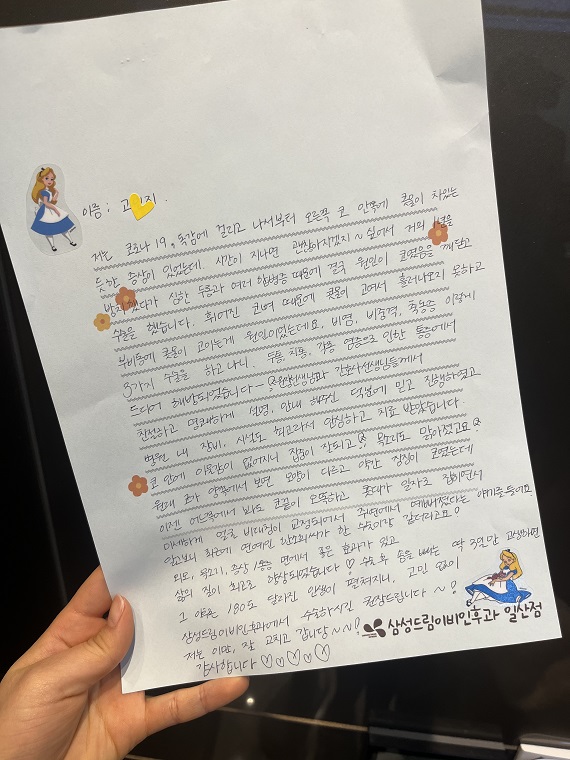 이름 : 고 지.
저는 코로나 19, 독감에 걸리고 나서부터 오른쪽 코 안쪽에 콧물이 차있는
듯한 증상이 있었는데. 시간이 지나면 괜찮아지겠지~ 싶어서 거의 을
방치했다가 심한 두통과 여러 합병증 때문에 결국 원인이 코였음을 깨닫고
수술을 했습니다. 휘어진 코뼈 때문에 콧물이 고여서 흘러나오지 못하고
부비동에 콧물이 고이는게 원인이었는데요, 비염, 비중격, 축농증 이렇게
3가지 수술을 하고 나니. 두통, 치통, 각종 염증으로 인한 통증에서
드디어 해방되었습니다~ 원장선생님과 간호사선생님들께서
친절하고 명쾌하게 설명, 안내 해주신 덕분에 믿고 진행하였고
병원 내 장비, 시설도 최고라서 안심하고 치료 받았습니다.
코 안에 이물감이 없어지니 집중이 잘되고 목소리도 맑아졌고요
원래 코가 양쪽에서 보면 모양이 다르고 약간 짱짱이 코였는데
이젠 어느쪽에서 봐도 코끝이 오똑하고 콧대가 일자로 잡히면서
미세하게 얼굴 비대칭이 교정되어서 주변에서 예뻐졌다는 얘기를 들어요
알고보니 최근에 연예인 한 수술이랑 같더라고요!
외모, 목소리, 증상/통증 면에서 좋은 효과가 있고
삶의 질이 최고로 향상되었습니다♡ 수술 후 솜을 빼는 딱 3일만 고생하면
그 이후는 180도 달라진 인생이 펼쳐지니, 고민 없이
삼성드림이비인후과에서 수술하시길 추천드립니다~!
저는 이만, 잘 고치고 갑니당~~!
감사합니다♡♡♡♡♡
삼성드림이비인후과 일산점